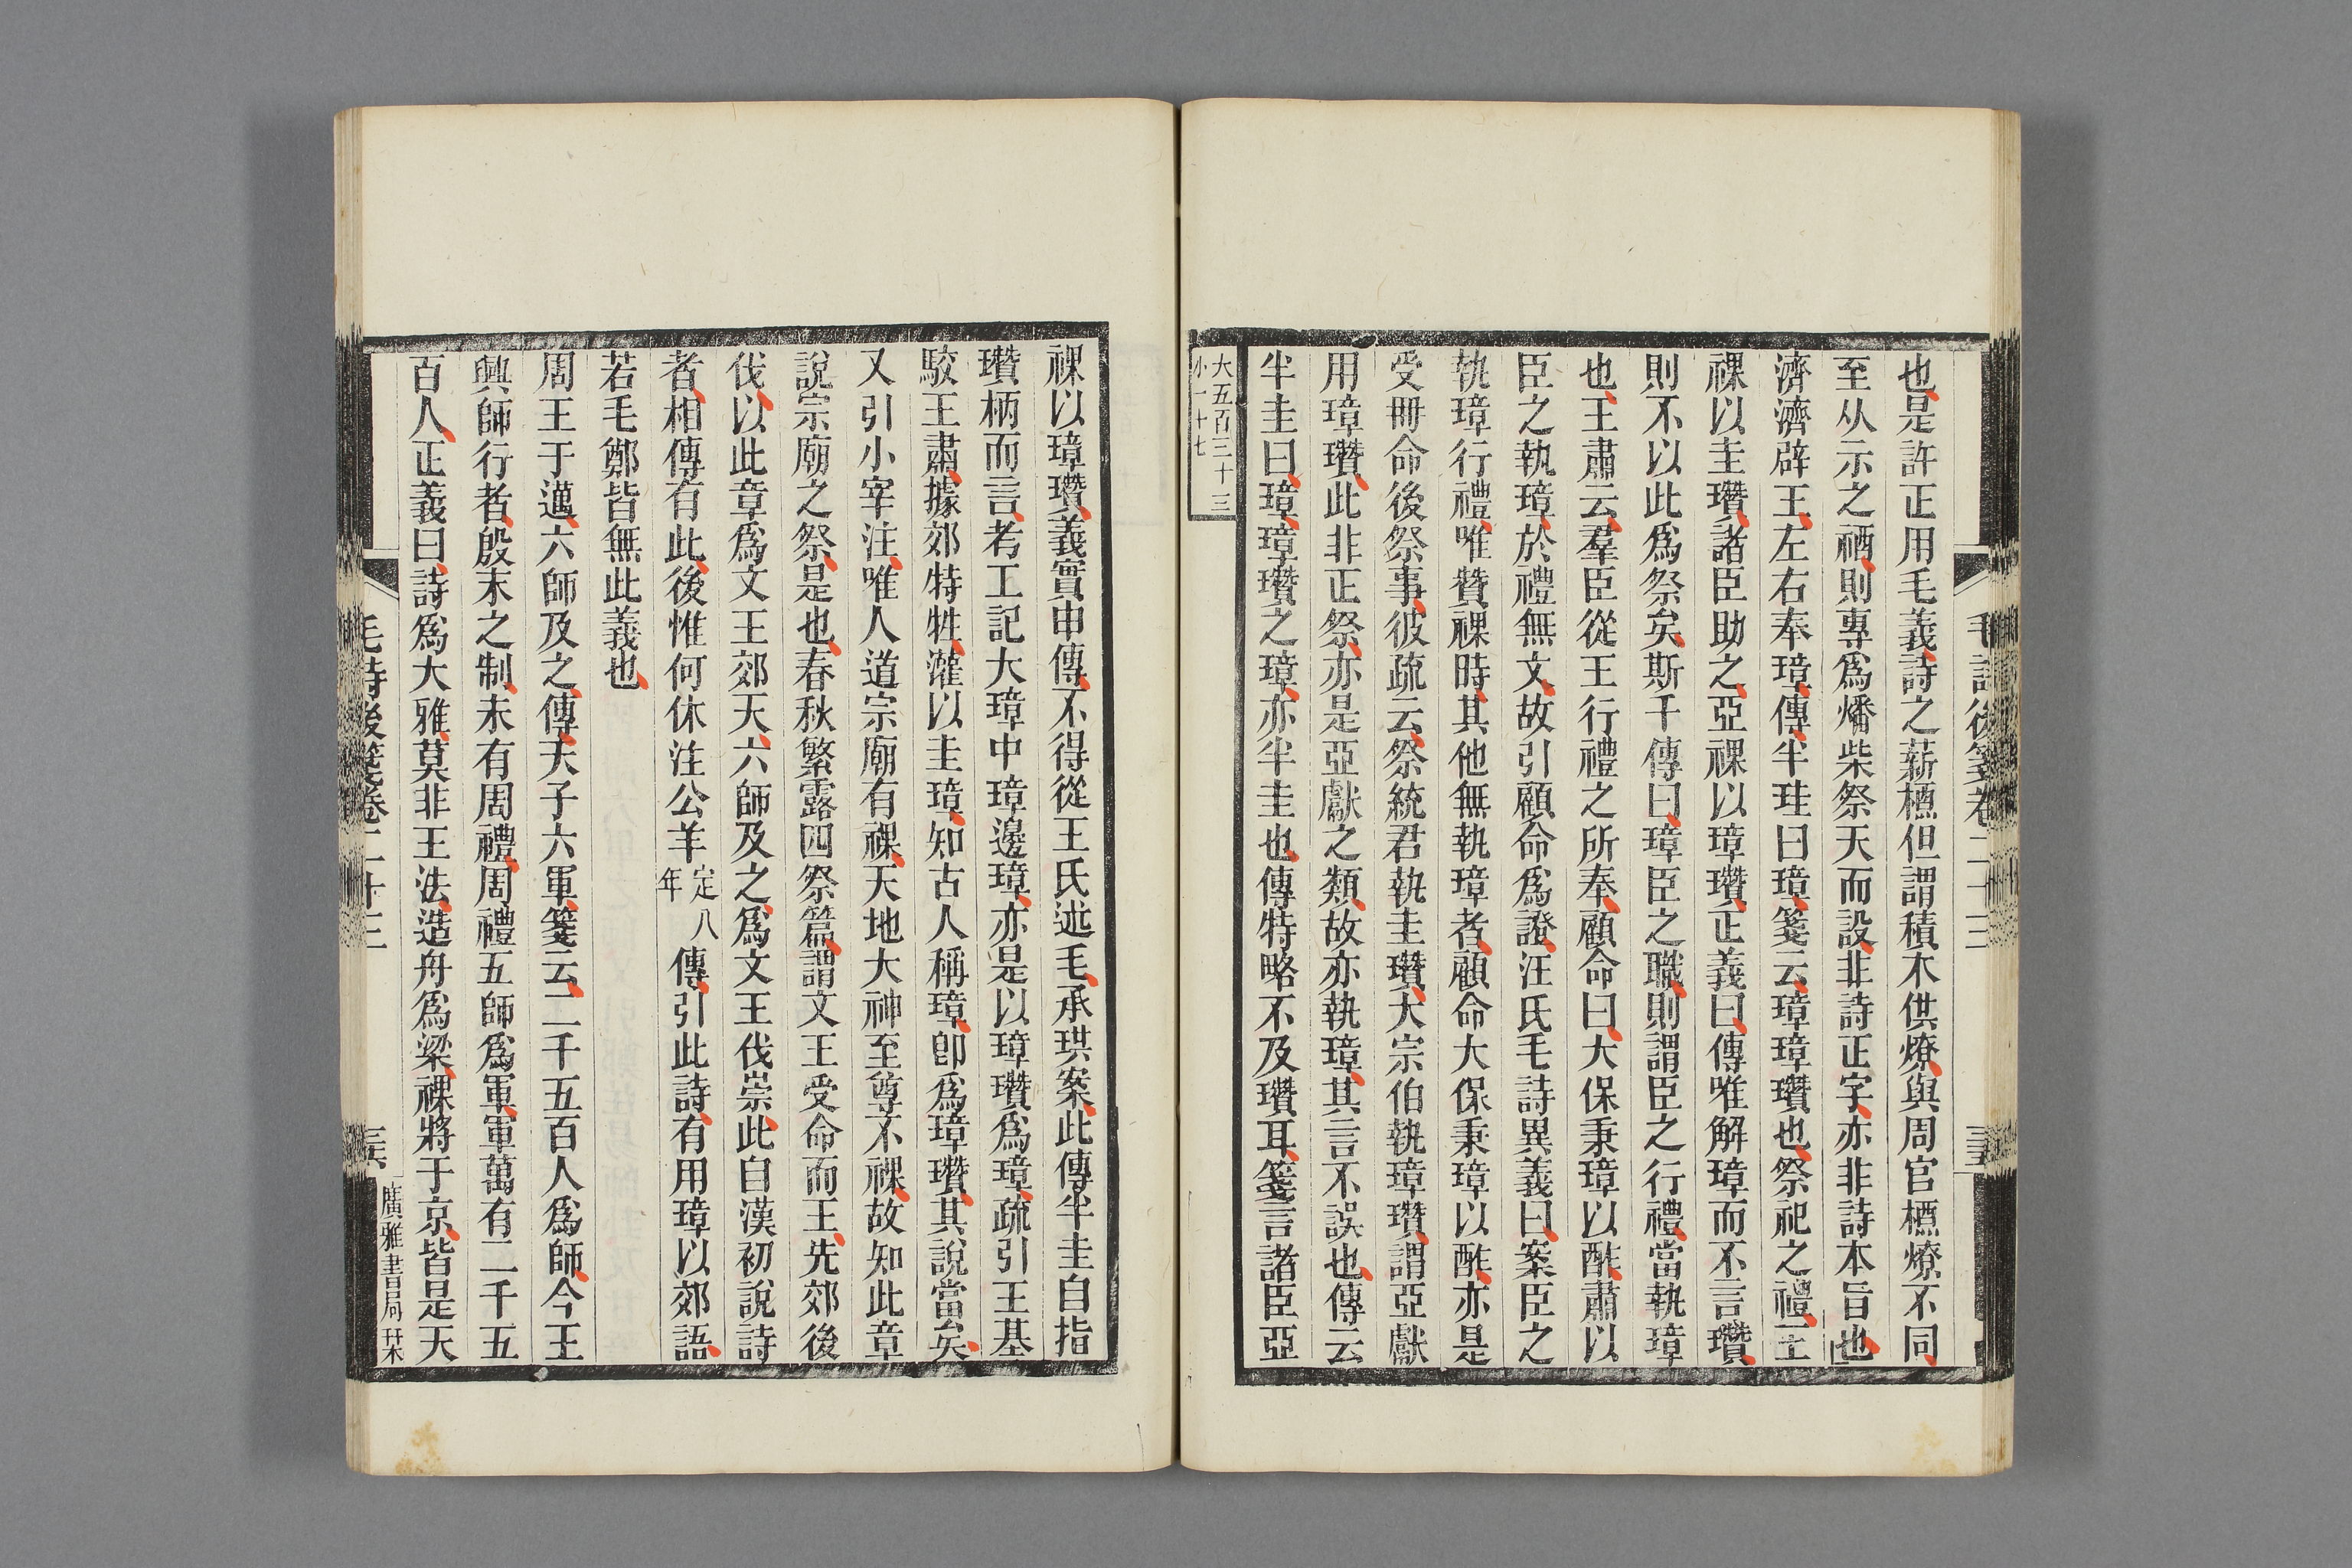 也是許正用毛義詩之薪槱但謂積木供燎與周官槱燎不同
至从示之禉則專爲燔柴祭天而設非詩正字亦非詩本旨也
濟濟辟王左右奉璋傳半珪曰璋箋云璋璋瓚也祭祀之禮王
祼以圭瓚諸臣助之亞祼以璋瓚正義曰傳唯解璋而不言瓚
則不以此爲祭矣斯干傳曰璋臣之職則謂臣之行禮當執璋
也王肅云羣臣從王行禮之所奉顧命曰大保秉璋以酢肅以
臣之執璋於禮無文故引顧命爲證汪氏毛詩異義曰案臣之
執璋行禮唯贊祼時其他無執璋者顧命大保秉璋以酢亦是
受冊命後祭事彼疏云祭統君執圭瓚大宗伯執璋瓚謂亞獻
用璋瓚此非正祭亦是亞獻之類故亦執璋其言不誤也傳云
半圭曰璋璋瓚之璋亦半圭也傳特略不及瓚耳箋言諸臣亞
大五百三十三
小一十七
毛詩後箋卷二十三
祼以璋瓚義實申傳不得從王氏述毛承珙案此傳半圭自指
瓚柄而言考工記大璋中璋邊璋亦是以璋瓚爲璋疏引王基
駮王肅據郊特牲灌以圭璋知古人稱璋卽爲璋瓚其說當矣
又引小宰注唯人道宗廟有祼天地大神至尊不祼故知此章
說宗廟之祭是也春秋繁露四祭篇謂文王受命而王先郊後
伐以此章爲文王郊天六師及之爲文王伐崇此自漢初說詩
者相傳有此後惟何休注公羊定八年傳引此詩有用璋以郊語
若毛鄭皆無此義也
周王于邁六師及之傳天子六軍箋云二千五百人爲師今王
興師行者殷末之制未有周禮周禮五師爲軍軍萬有二千五
百人正義曰詩爲大雅莫非王法造舟爲梁祼將于京皆是天
毛詩後箋卷二十三
廣雅書局栞